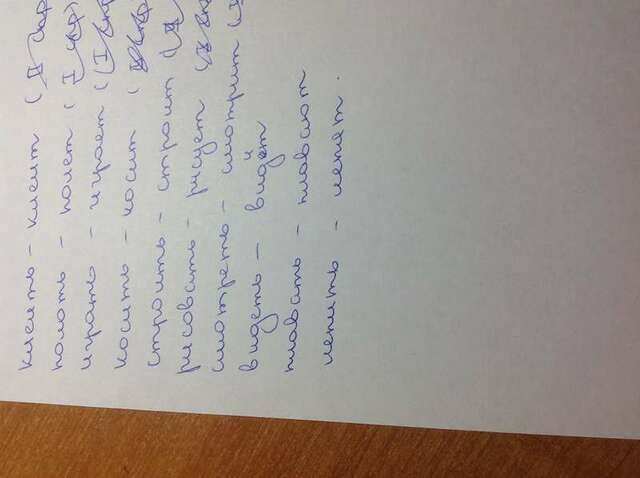 клеить – клеит (II спр
полоть – полет (I спр)
играть – играет (I спр
косить – косит (
строить – строит (
рисовать – рисует (
смотреть – смотрит (
видеть – видит
плавать – плавают
лепить – лепет.